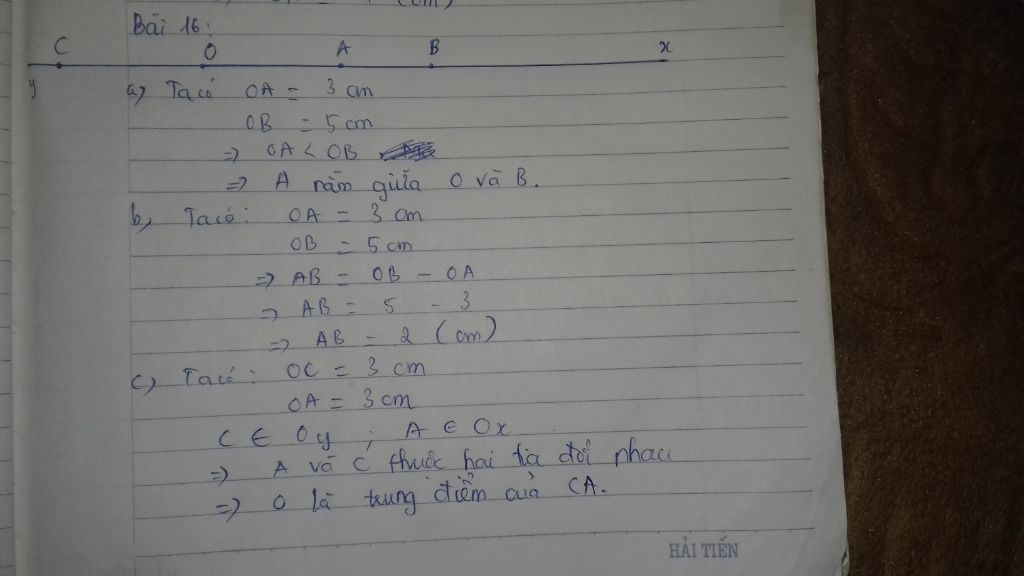 Bài 16:
C O A B x
y
a) Ta có OA = 3 cm
OB = 5 cm
=> OA < OB
=> A nằm giữa O và B.
b) Ta có: OA = 3 cm
OB = 5 cm
=> AB = OB - OA
=> AB = 5 - 3
=> AB = 2 (cm)
c) Ta có: OC = 3 cm
OA = 3 cm
C ∈ Oy ; A ∈ Ox
=> A và C thuộc hai tia đối nhau
=> O là trung điểm của CA.
HẢI TIẾN